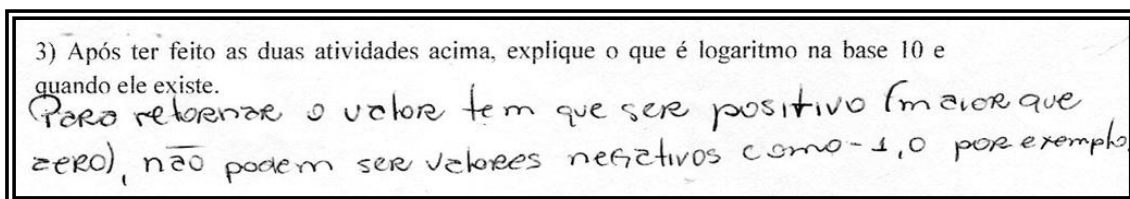 3) Após ter feito as duas atividades acima, explique o que é logaritmo na base 10 e
quando ele existe.
Para retornar o valor tem que ser positivo (maior que
zero), não podem ser valores negativos como -1,0 por exemplo.